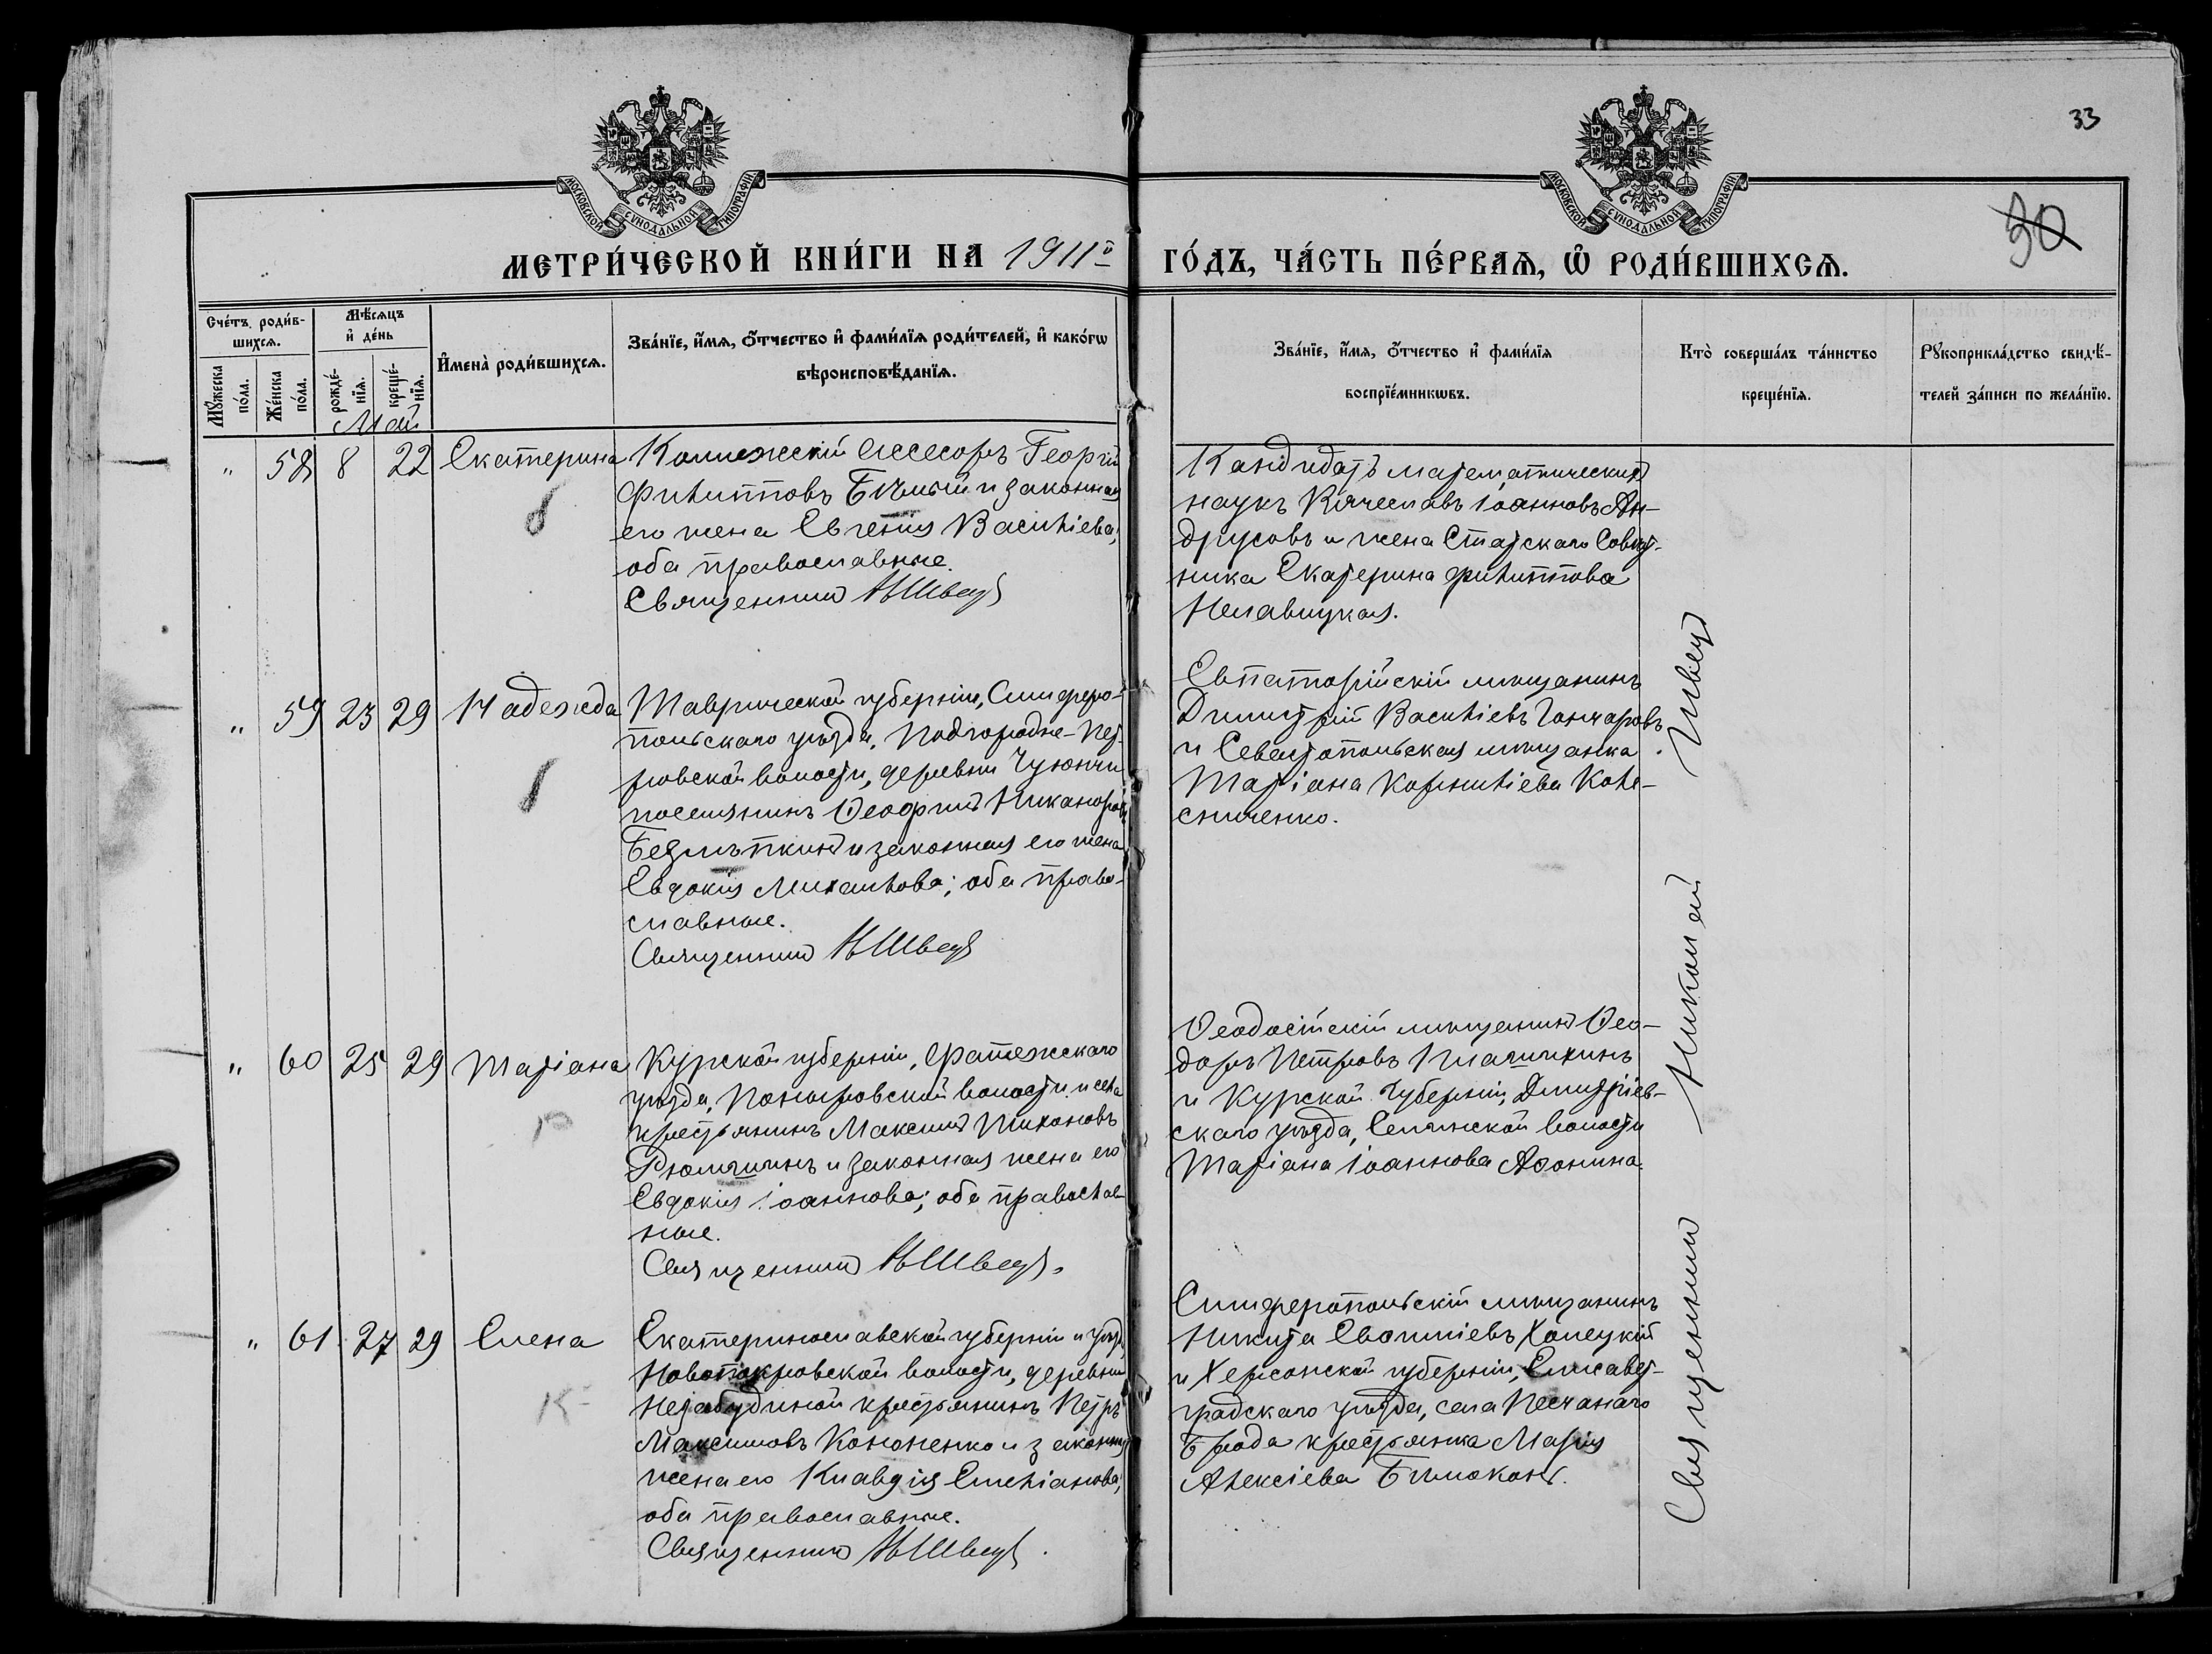 33
30
МОСКОВСКОЙ СѴНОДАЛЬНОЙ ТИПОГРАФІИ
МОСКОВСКОЙ СѴНОДАЛЬНОЙ ТИПОГРАФІИ
МЕТРИ́ЧЕСКОЙ КНИ́ГИ НА 1911й ГО́ДЪ, ЧА́СТЬ ПЕ́РВАѦ, Ѡ РОДИ́ВШИХСѦ.
Сче́тъ роди́в-
шихсѧ.
Мꙋ́жеска по́ла.
Же́нска по́ла.
Мѣ́сѧцъ
и҆ де́нь
рожде́-
нїѧ.
креще́-
нїѧ.
И҆мена̀ роди́вшихсѧ.
Зва́нїе, и҆́мѧ, ѻ҆́тчество и҆ фами́лїѧ роди́телей, и҆ како́гѡ
вѣроисповѣ́данїѧ.
Зва́нїе, и҆́мѧ, ѻ҆́тчество и҆ фами́лїѧ
воспрїе́мникѡвъ.
Кто̀ соверша́лъ та́инство
креще́нїѧ.
Рꙋкоприкла́дство свидѣ́-
телей за́писи по жела́нїю.
Май
" 58 8 22 Екатерина
Коллежскій Ассесоръ Георгій
Филипповъ Бѣлый и законная
его жена Евгенія Василіева,
оба православные.
Священникъ Н Швецъ
Кандидатъ математическихъ
наукъ Вячеславъ Іоанновъ Ан-
друсовъ и жена Статскаго Совѣт-
ника Екатерина Филиппова
" 59 23 29 Надежда
Таврической губерніи, Симферо-
польскаго уѣзда, Подгородне-Пет-
ровской волости, деревни
поселянинъ Ѳеофилъ Никаноровъ
и законная его жена
Евдокія Михайлова; оба право-
славные.
Священникъ Н Швецъ
Евпаторійскій мѣщанинъ
Димитрій Василіевъ Гончаровъ
и Севастопольская мѣщанка
Маріана Корниліева Коле-
сниченко.
" 60 25 29 Маріана
Курской губерніи, Фатежскаго
уѣзда, Поныровской волости и села
крестьянинъ Максимъ Тихоновъ
и законная жена его
Евдокія Іоаннова; оба православ-
ные.
Священникъ Н Швецъ.
Ѳеодосійскій мѣщанинъ Ѳео-
доръ Петровъ
и Курской губерніи, Димитріев-
скаго уѣзда, волости
Маріана Іоаннова Аѳонина.
" 61 27 29 Елена
Екатеринославской губерніи и уѣзда,
Новопокровской волости, деревни
Незабудиной крестьянинъ Петръ
Максимовъ Кононенко и законная
жена его Клавдія Емеліанова,
оба православные.
Священникъ Н Швецъ.
Симферопольскій мѣщанинъ
Никита Хапецкій
и Херсонской губерніи, Елисавет-
градскаго уѣзда, села Песчанаго
Брода крестьянка Марія
Алексіева Бѣлоконь.
Священникъ Николай Швецъ.